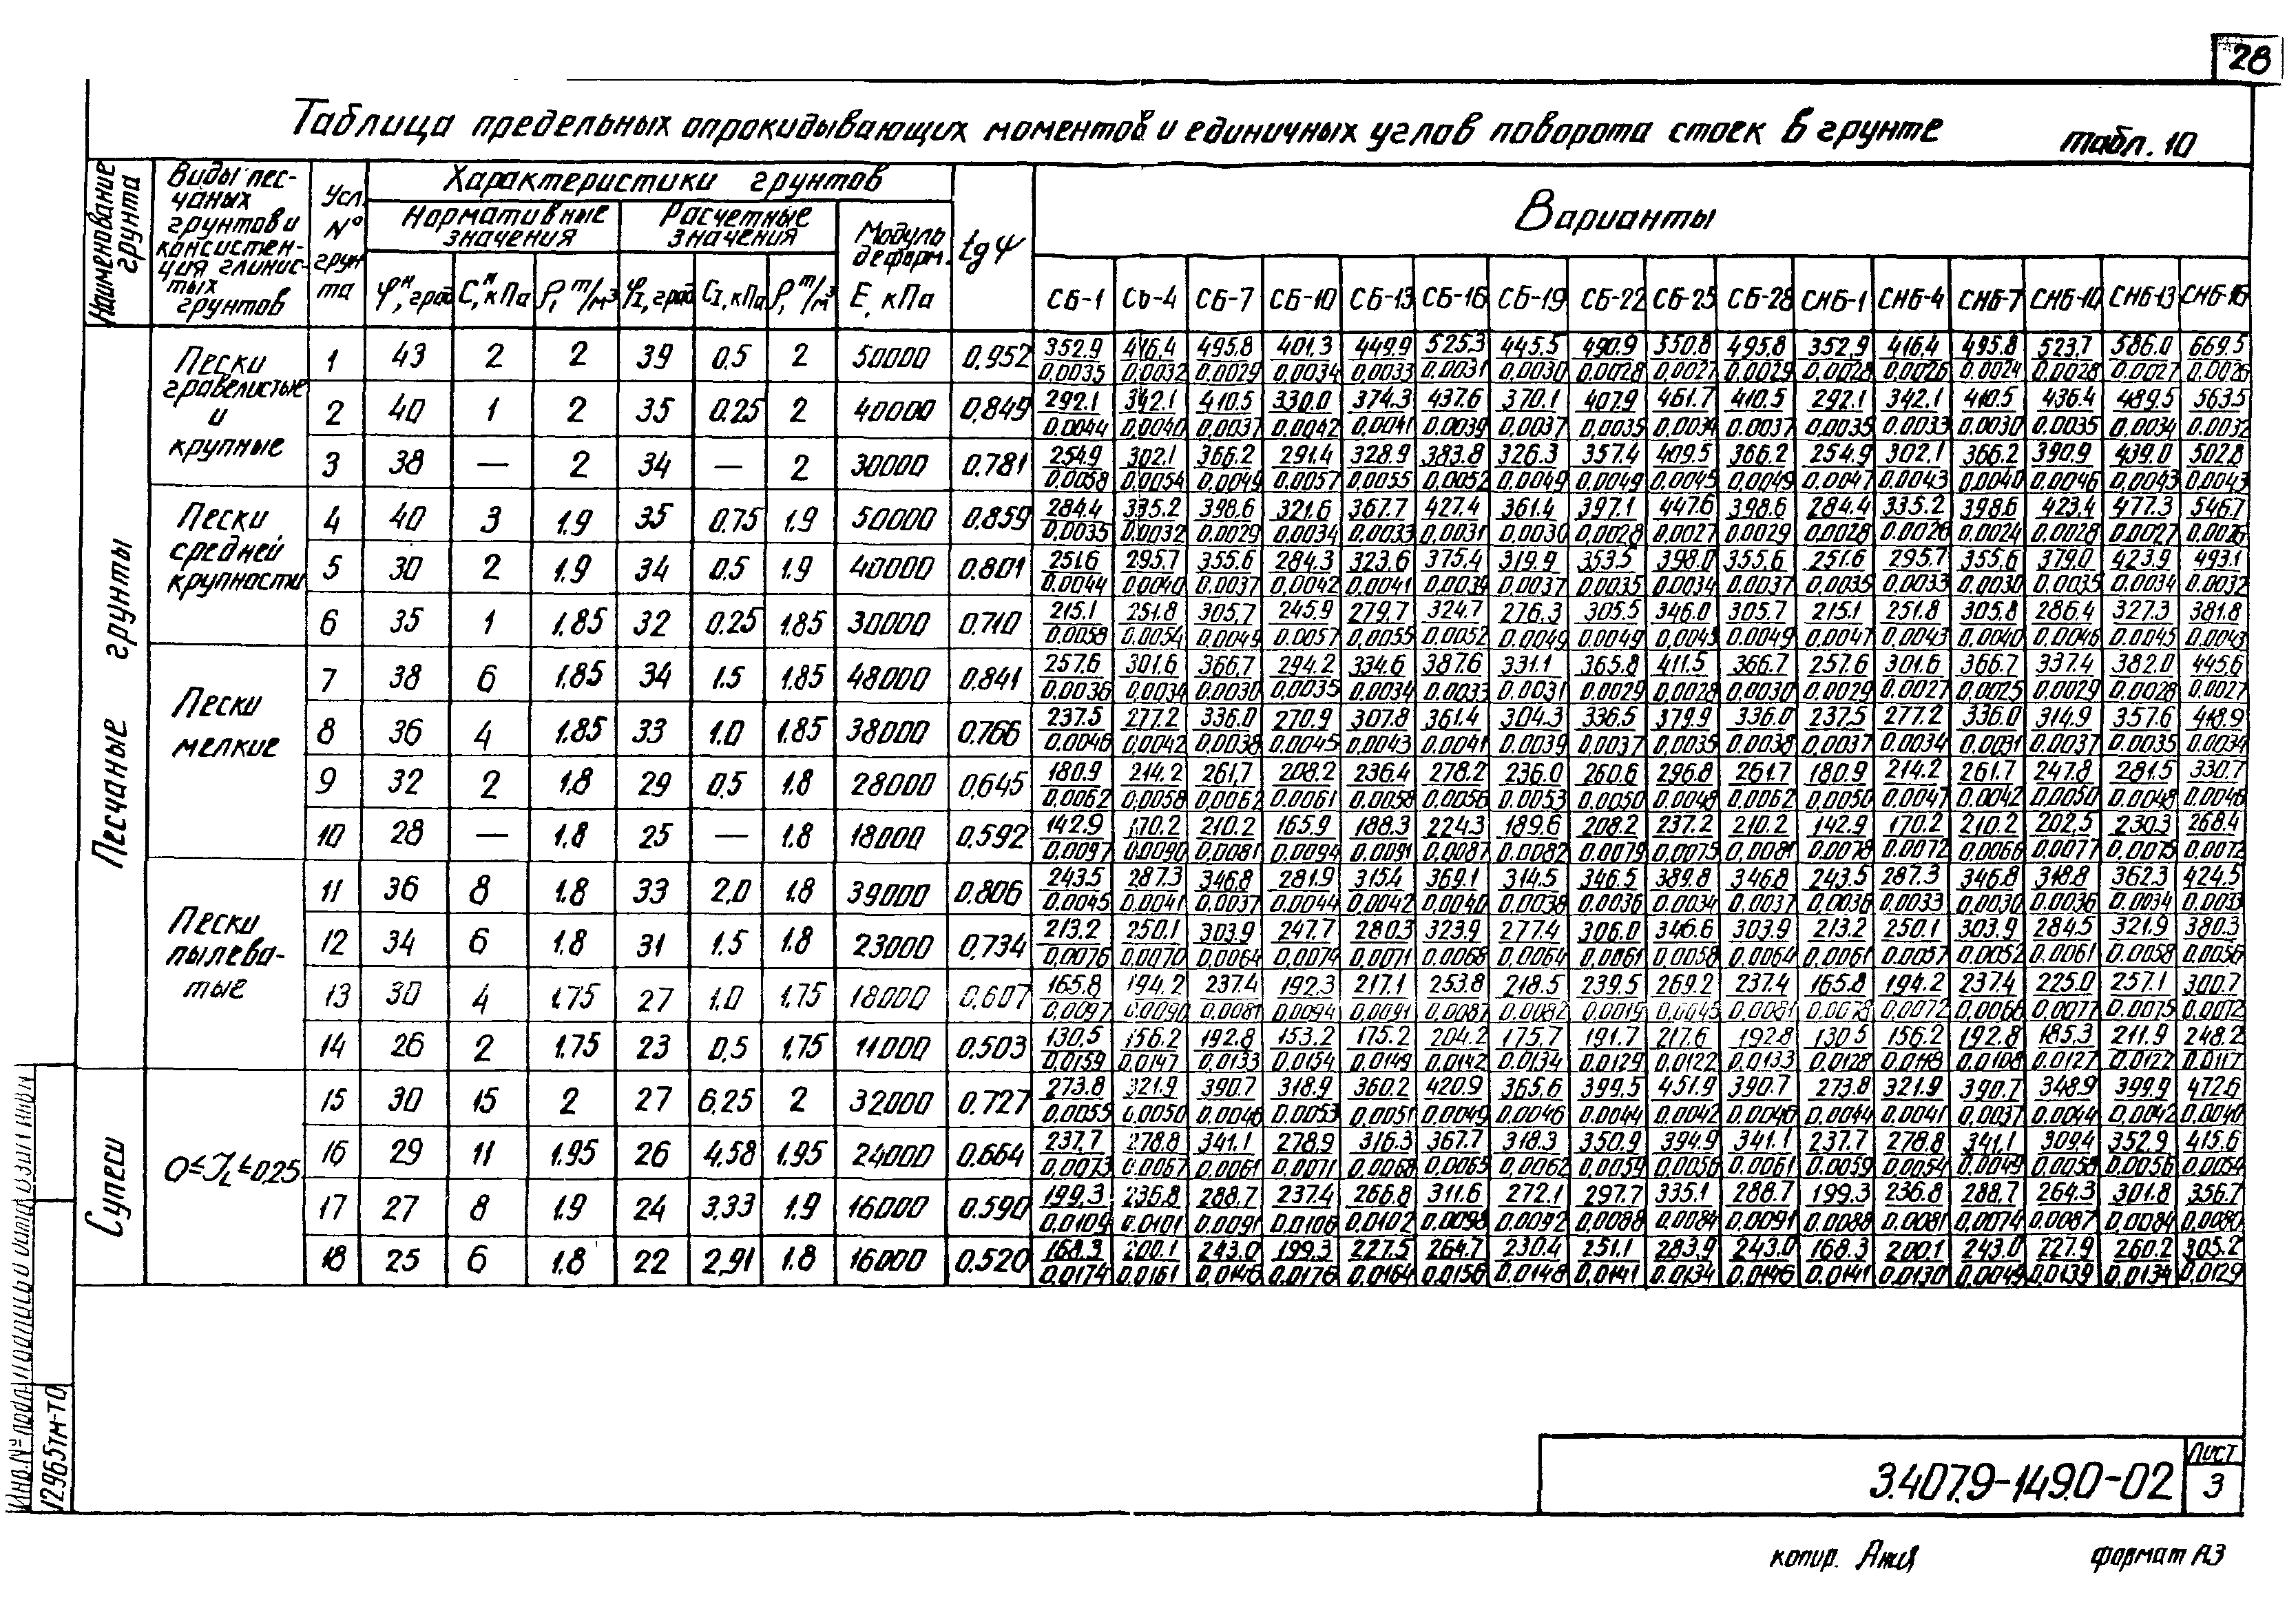 28
Таблица предельных опрокидывающих моментов и единичных углов поворота стоек в грунте
табл. 10
Наименование грунта
Виды песчаных грунтов и консистенция глинистых грунтов
Усл. № грунта
Характеристики грунтов
Нормативные значения
Расчетные значения
Модуль деформ. E, кПа
tgψ
Варианты
φᴴ, град Cᴴ, кПа ρ, т/м³ φI, град CI, кПа ρ, т/м³
СБ-1 СБ-4 СБ-7 СБ-10 СБ-13 СБ-16 СБ-19 СБ-22 СБ-25 СБ-28 СНБ-1 СНБ-4 СНБ-7 СНБ-10 СНБ-13 СНБ-16
Песчаные грунты
Пески гравелистые и крупные
1 43 2 2 39 0,5 2 50000 0,952 352.9 416.4 495.8 401.3 449.9 525.3 445.5 490.9 550.8 495.8 352.9 416.4 495.8 523.7 586.0 669.5
0.0035 0.0032 0.0029 0.0034 0.0033 0.0031 0.0030 0.0028 0.0027 0.0029 0.0028 0.0026 0.0024 0.0028 0.0027 0.0026
2 40 1 2 35 0.25 2 40000 0,849 292.1 342.1 410.5 330.0 374.3 437.6 370.1 407.9 461.7 410.5 292.1 342.1 410.5 436.4 489.5 563.5
0.0044 0.0040 0.0037 0.0042 0.0041 0.0039 0.0037 0.0035 0.0034 0.0037 0.0035 0.0033 0.0030 0.0035 0.0034 0.0032
3 38 — 2 34 — 2 30000 0.781 254.9 302.1 366.2 291.4 328.9 383.8 326.3 357.4 409.5 366.2 254.9 302.1 366.2 390.9 439.0 502.8
0.0058 0.0054 0.0049 0.0057 0.0055 0.0052 0.0049 0.0049 0.0045 0.0049 0.0047 0.0043 0.0040 0.0046 0.0043 0.0043
Пески средней крупности
4 40 3 1.9 35 0.75 1.9 50000 0.859 284.4 335.2 398.6 321.6 367.7 427.4 361.4 397.1 447.6 398.6 284.4 335.2 398.6 423.4 477.3 546.7
0.0035 0.0032 0.0029 0.0034 0.0033 0.0031 0.0030 0.0028 0.0027 0.0029 0.0028 0.0026 0.0024 0.0028 0.0027 0.0026
5 30 2 1.9 34 0.5 1.9 40000 0.801 251.6 295.7 355.6 284.3 323.6 375.4 319.9 353.5 398.0 355.6 251.6 295.7 355.6 379.0 423.9 493.1
0.0044 0.0040 0.0037 0.0042 0.0041 0.0039 0.0037 0.0035 0.0034 0.0037 0.0035 0.0033 0.0030 0.0035 0.0034 0.0032
6 35 1 1,85 32 0.25 1.85 30000 0.710 215.1 251.8 305.7 245.9 279.7 324.7 276.3 305.5 346.0 305.7 215.1 251.8 305.8 286.4 327.3 381.8
0.0058 0.0054 0.0049 0.0057 0.0055 0.0052 0.0049 0.0049 0.0045 0.0049 0.0047 0.0043 0.0040 0.0046 0.0045 0.0043
Пески мелкие
7 38 6 1.85 34 1.5 1.85 48000 0.841 257.6 301.6 366.7 294.2 334.6 387.6 331.1 365.8 411.5 366.7 257.6 301.6 366.7 337.4 382.0 445.6
0.0036 0.0034 0.0030 0.0035 0.0034 0.0033 0.0031 0.0029 0.0028 0.0030 0.0029 0.0027 0.0025 0.0029 0.0028 0.0027
8 36 4 1.85 33 1.0 1.85 38000 0.766 237.5 277.2 336.0 270.9 307.8 361.4 304.3 336.5 379.9 336.0 237.5 277.2 336.0 314.9 357.6 418.9
0.0046 0.0042 0.0038 0.0045 0.0043 0.0041 0.0039 0.0037 0.0035 0.0038 0.0037 0.0034 0.0031 0.0037 0.0035 0.0034
9 32 2 1.8 29 0.5 1.8 28000 0,645 180.9 214.2 261.7 208.2 236.4 278.2 236.0 260.6 296.8 261.7 180.9 214.2 261.7 247.8 281.5 330.7
0.0062 0.0058 0.0062 0.0061 0.0058 0.0056 0.0053 0.0050 0.0048 0.0062 0.0050 0.0047 0.0042 0.0050 0.0048 0.0046
10 28 — 1.8 25 — 1.8 18000 0,592 142.9 170.2 210.2 165.9 188.3 224.3 189.6 208.2 237.2 210.2 142.9 170.2 210.2 202.5 230.3 268.4
0.0097 0.0090 0.0081 0.0094 0.0091 0.0087 0.0082 0.0079 0.0075 0.0081 0.0078 0.0072 0.0066 0.0077 0.0075 0.0072
Пески пылеватые
11 36 8 1.8 33 2,0 1.8 39000 0.806 243.5 287.3 346.8 281.9 315.4 369.1 314.5 346.5 389.8 346.8 243.5 287.3 346.8 318.8 362.3 424.5
0.0045 0.0041 0.0037 0.0044 0.0042 0.0040 0.0038 0.0036 0.0034 0.0037 0.0036 0.0033 0.0030 0.0036 0.0034 0.0033
12 34 6 1.8 31 1.5 1.8 23000 0,734 213.2 250.1 303.9 247.7 280.3 323.9 277.4 306.0 346.6 303.9 213.2 250.1 303.9 284.5 321.9 380.3
0.0076 0.0070 0.0064 0.0074 0.0071 0.0068 0.0064 0.0061 0.0058 0.0064 0.0061 0.0057 0.0052 0.0061 0.0058 0.0056
13 30 4 1.75 27 1.0 1.75 18000 0.607 165.8 194.2 237.4 192.3 217.1 253.8 218.5 239.5 269.2 237.4 165.8 194.2 237.4 225.0 257.1 300.7
0.0097 0.0090 0.0081 0.0094 0.0091 0.0087 0.0082 0.0081 0.0078 0.0072 0.0066 0.0077 0.0075 0.0072
14 26 2 1.75 23 0,5 1.75 11000 0.503 130.5 156.2 192.8 153.2 175.2 204.2 175.7 191.7 217.6 192.8 130.5 156.2 192.8 185.3 211.9 248.2
0.0159 0.0147 0.0133 0.0154 0.0149 0.0142 0.0134 0.0129 0.0122 0.0133 0.0128 0.0118 0.0108 0.0127 0.0122 0.0117
Супеси
0≤JL≤0,25
15 30 15 2 27 6,25 2 32000 0.727 273.8 321.9 390.7 318.9 360.2 420.9 365.6 399.5 451.9 390.7 273.8 321.9 390.7 348.9 399.9 472.6
0.0055 0.0050 0.0046 0.0053 0.0051 0.0049 0.0046 0.0044 0.0042 0.0046 0.0044 0.0041 0.0037 0.0044 0.0042 0.0040
16 29 11 1.95 26 4,58 1.95 24000 0.664 237.7 278.8 341.1 278.9 316.3 367.7 318.3 350.9 394.9 341.1 237.7 278.8 341.1 309.4 352.9 415.6
0.0073 0.0067 0.0061 0.0071 0.0068 0.0065 0.0062 0.0059 0.0056 0.0061 0.0059 0.0054 0.0049 0.0058 0.0056 0.0054
17 27 8 1.9 24 3,33 1.9 16000 0.590 199.3 236.8 288.7 237.4 266.8 311.6 272.1 297.7 335.1 288.7 199.3 236.8 288.7 264.3 301.8 356.7
0.0109 0.0101 0.0091 0.0106 0.0102 0.0098 0.0092 0.0088 0.0084 0.0091 0.0088 0.0081 0.0074 0.0087 0.0084 0.0080
18 25 6 1.8 22 2,91 1.8 16000 0.520 168.3 200.1 243.0 199.3 227.5 264.7 230.4 251.1 283.9 243.0 168.3 200.1 243.0 227.9 260.2 305.2
0.0174 0.0161 0.0146 0.0176 0.0164 0.0156 0.0148 0.0141 0.0134 0.0146 0.0141 0.0130 0.0049 0.0139 0.0134 0.0129
Инв.№ подл
12965тм-Т0
3.407.9-149.0-02
Лист
3
копир.
формат А3